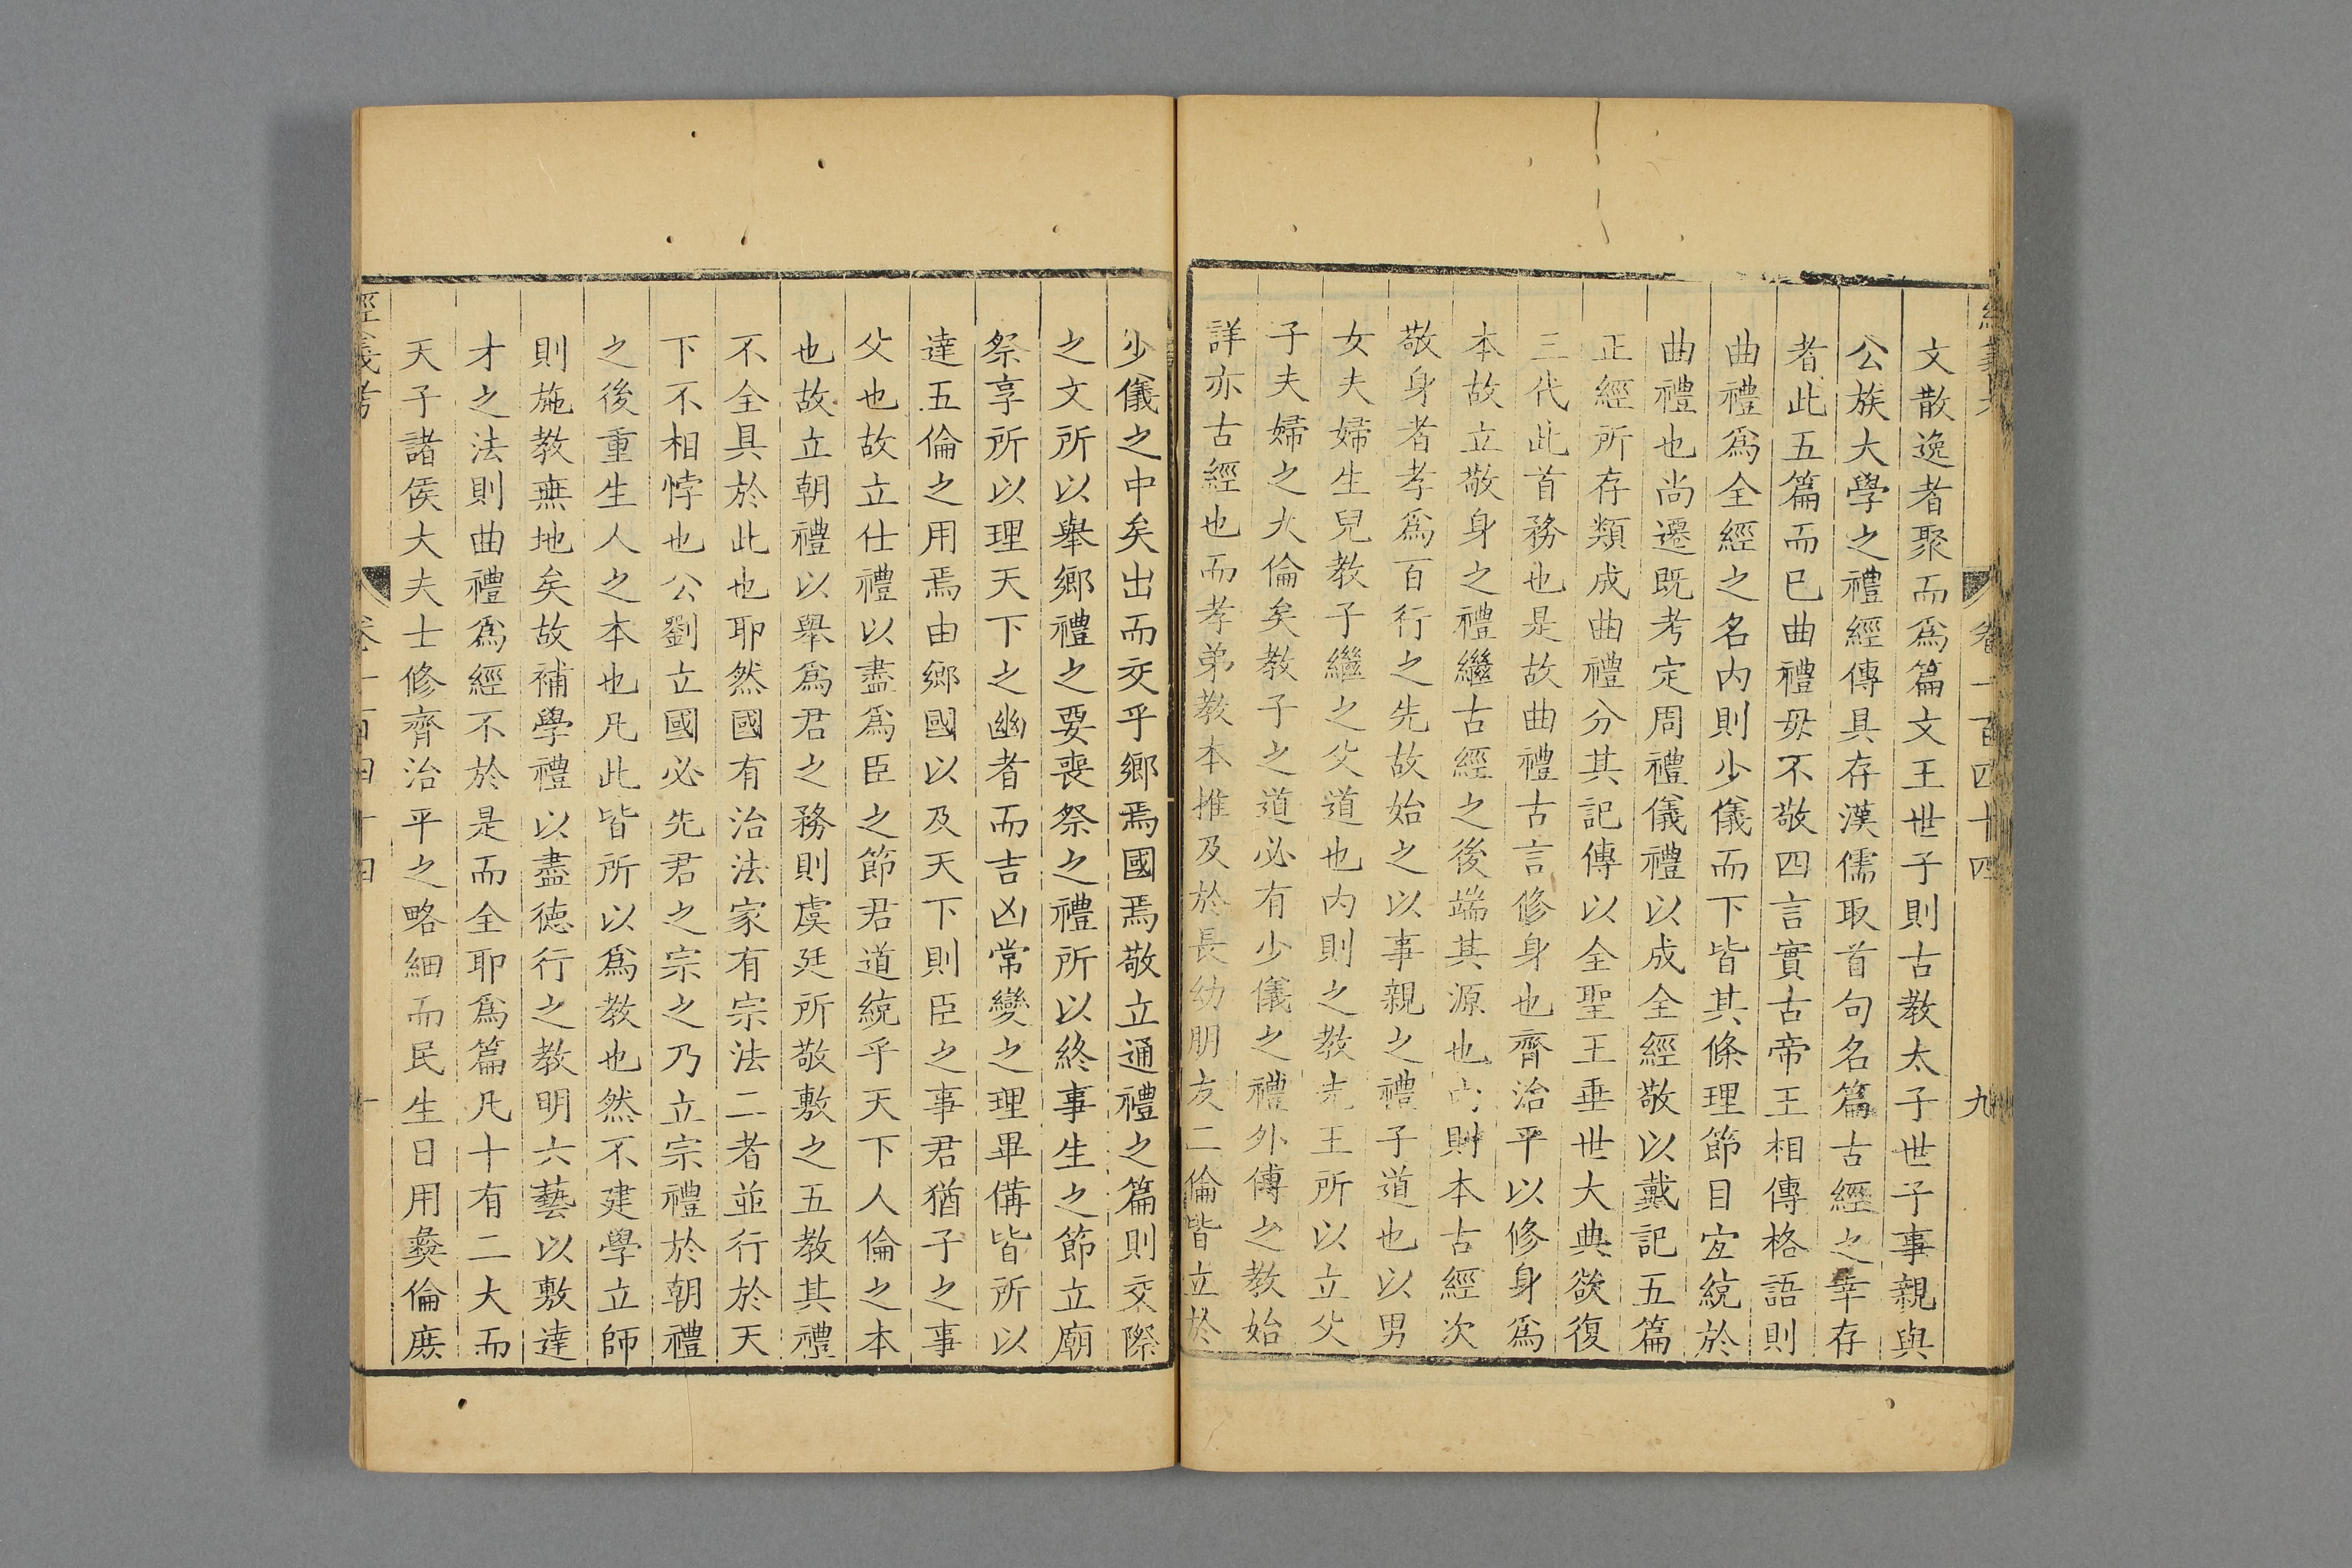 文散逸者聚而爲篇文王世子則古教太子世子事親與
公族大學之禮經傳具存漢儒取首句名篇古經之幸存
者此五篇而已曲禮毋不敬四言實古帝王相傳格語則
曲禮爲全經之名内則少儀而下皆其條理節目宜統於
曲禮也尚遷既考定周禮儀禮以成全經敬以戴記五篇
正經所存類成曲禮分其記傳以全聖王垂世大典欲復
三代此首務也是故曲禮古言修身也齊治平以修身爲
本故立敬身之禮繼古經之後端其源也内則本古經次
敬身者孝爲百行之先故始之以事親之禮子道也以男
女夫婦生兒教子繼之父道也内則之教先王所以立父
子夫婦之大倫矣教子之道必有少儀之禮外傳之教始
詳亦古經也而孝弟教本推及於長幼朋友二倫皆立於
卷一百四十四 九
少儀之中矣出而交乎鄉焉國焉敬立通禮之篇則交際
之文所以舉鄉禮之要喪祭之禮所以終事生之節立廟
祭享所以理天下之幽者而吉凶常變之理畢備皆所以
達五倫之用焉由鄉國以及天下則臣之事君猶子之事
父也故立仕禮以盡爲臣之節君道統乎天下人倫之本
也故立朝禮以舉爲君之務則虞廷所敬敷之五教其禮
不全具於此也耶然國有治法家有宗法二者並行於天
下不相悖也公劉立國必先君之宗之乃立宗禮於朝禮
之後重生人之本也凡此皆所以爲教也然不建學立師
則施教無地矣故補學禮以盡德行之教明六藝以敷達
才之法則曲禮爲經不於是而全耶爲篇凡十有二大而
天子諸侯大夫士修齊治平之略細而民生日用彝倫庶
經義考